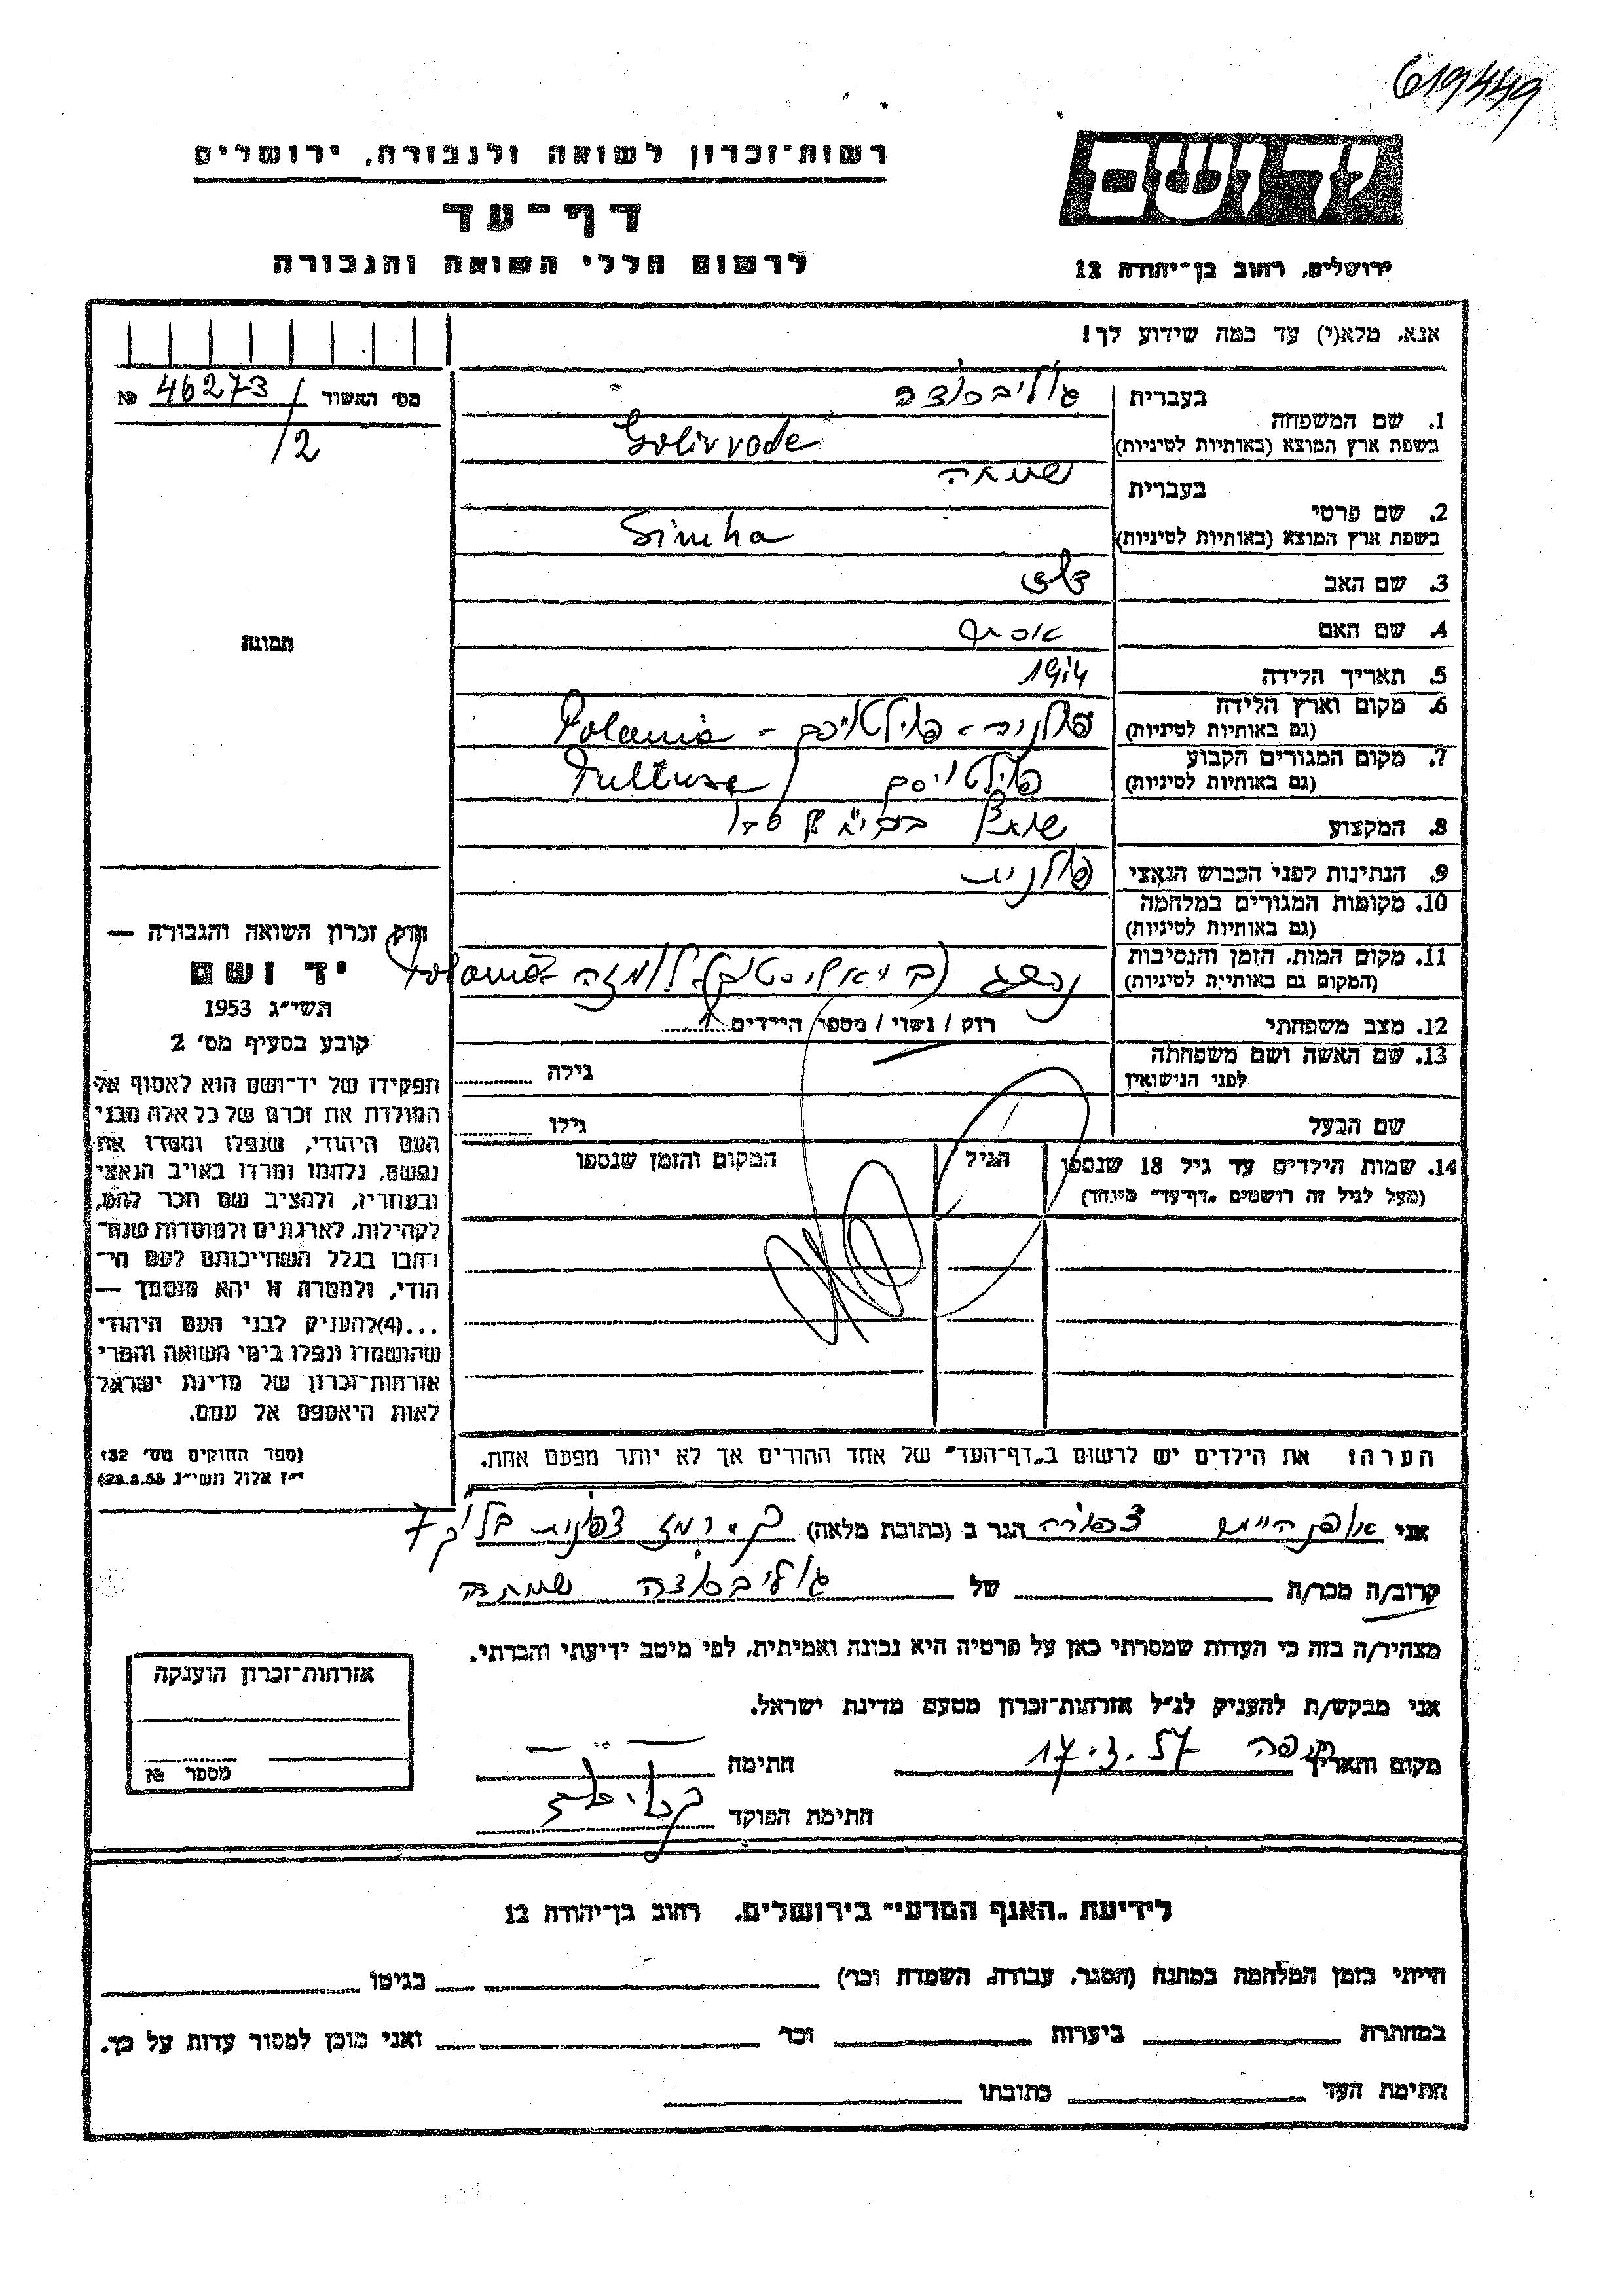 619449
רשות־זכרון לשואה ולגבורה, ירושלים
יד ושם
דף־עד
לרשום חללי השואה והגבורה
ירושלים, רחוב בן־יהודה 12
אנא, מלא(י) עד כמה שידוע לך!
מס׳ האשור 46273/2 №
1. שם המשפחה
בעברית
בשפת ארץ המוצא (באותיות לטיניות)
2. שם פרטי
בעברית
בשפת ארץ המוצא (באותיות לטיניות) Simha
3. שם האב
4. שם האם
5. תאריך הלידה
6. מקום וארץ הלידה
(גם באותיות לטיניות) Polania
7. מקום המגורים הקבוע
(גם באותיות לטיניות)
8. המקצוע
9. הנתינות לפני הכבוש הנאצי פולנית
10. מקומות המגורים במלחמה
(גם באותיות לטיניות)
11. מקום המות, הזמן והנסיבות
(המקום גם באותיות לטיניות) Polania
12. מצב משפחתי רווק / נשוי / מספר הילדים
13. שם האשה ושם משפחתה
לפני הנישואין
גילה
שם הבעל
גילו
14. שמות הילדים עד גיל 18 שנספו
(מעל לגיל זה רושמים „דף־עד״ מיוחד)
הגיל
המקום והזמן שנספו
הערה! את הילדים יש לרשום ב„דף־העד״ של אחד ההורים אך לא יותר מפעם אחת.
תמונה
חוק זכרון השואה והגבורה —
יד ושם
תשי״ג 1953
קובע בסעיף מס׳ 2
תפקידו של יד־ושם הוא לאסוף אל
המולדת את זכרם של כל אלה מבני
העם היהודי, שנפלו ומסרו את
נפשם, נלחמו ומרדו באויב הנאצי
ובעוזריו, ולהציב שם וזכר להם,
לקהילות, לארגונים ולמוסדות שנח־
רבו בגלל השתייכותם לעם הי־
הודי, ולמטרה זו יהא מוסמך —
...(4)להעניק לבני העם היהודי
שהושמדו ונפלו בימי השואה והמרי
אזרחות־זכרון של מדינת ישראל
לאות היאספם אל עמם.
(ספר החוקים מס׳ 132
י״ז אלול תשי״ג 28.8.53)
אני צפורה הגר ב (כתובת מלאה)
קרוב/ה מכר/ה של
מצהיר/ה בזה כי העדות שמסרתי כאן על פרטיה היא נכונה ואמיתית, לפי מיטב ידיעתי והכרתי.
אני מבקש/ת להעניק לנ״ל אזרחות־זכרון מטעם מדינת ישראל.
מקום ותאריך חיפה 17.3.57 חתימה
חתימת הפוקד
אזרחות־זכרון הוענקה
מספר №
לידיעת „האגף המדעי״ בירושלים, רחוב בן־יהודה 12
הייתי בזמן המלחמה במחנה (הסגר, עבודה, השמדה וכו׳) בגיטו
במחתרת ביערות וכו׳ ואני מוכן למסור עדות על כך.
חתימת העד כתובתו